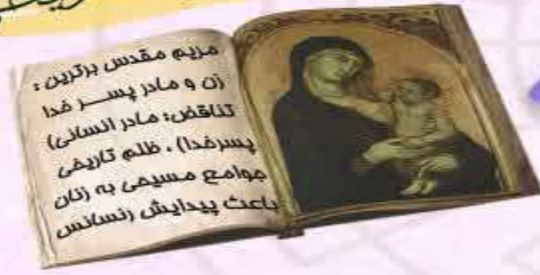 مریم مقدس برترین :
زن و مادر پسر خدا
تناقض: مادر انسانی)
پسرخدا) . ظلم تاریخی
جوامع مسیحی به زنان
باعث پیدایش رنسانس